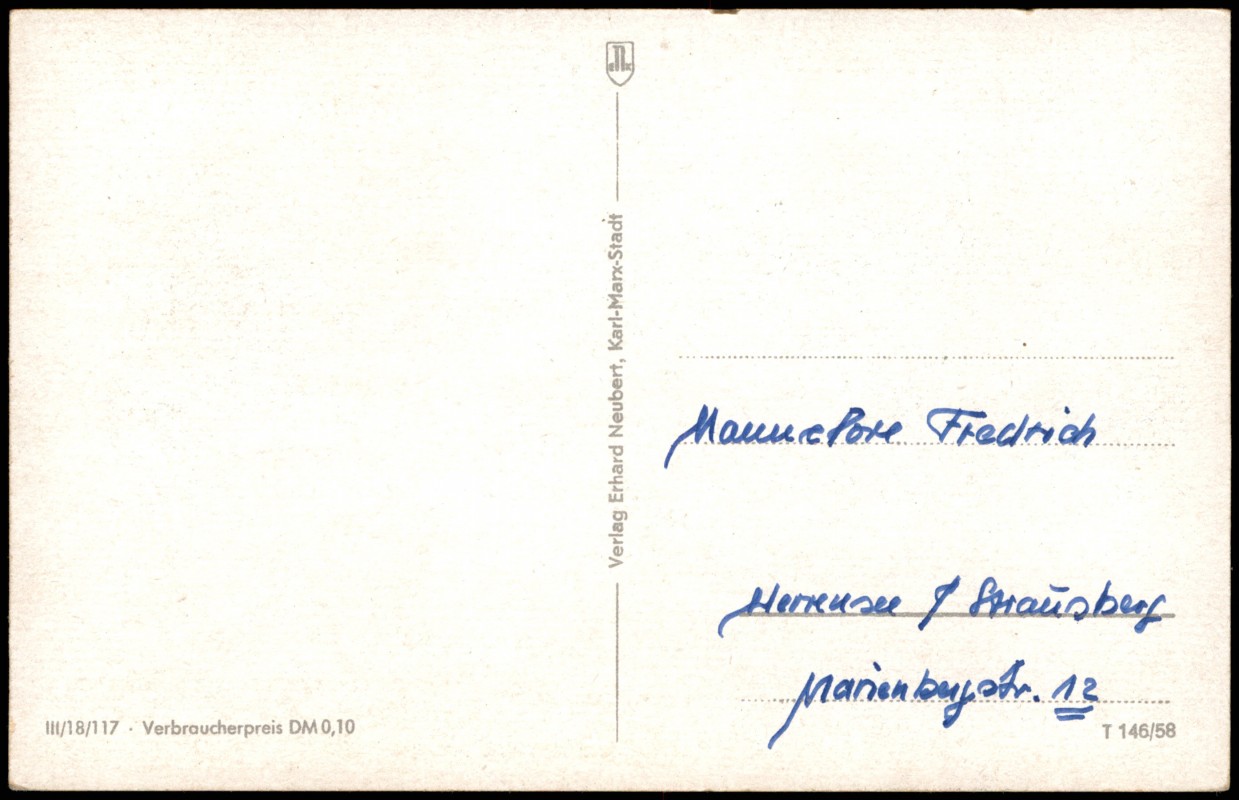 Verlag Erhard Neubert, Karl-Marx-Stadt
Hannelore Fredrich
Herrensee / Strausberg
Marienbergstr. 12
III/18/117 · Verbraucherpreis DM 0,10
T 146/58